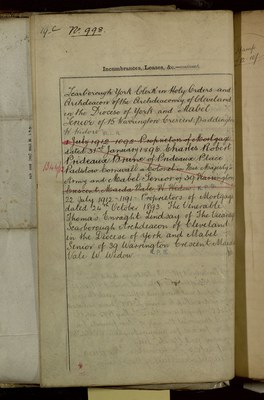 No. 998.
Incumbrances, Leases, &c.—continued.
Scarborough York Clerk in Holy Orders and
Archdeacon of the Archdeaconry of Cleveland
in the Diocese of York and Mabel
Senior of 15 Carrington Crescent Paddington
2 July 1912 Proprietors of Mortgage
dated 31st January 1898 Charles Robert
Prideaux Brune of Prideaux Place
Padstow Cornwall a Colonel in His Majesty's
Army and Mabel Senior of 39 Warrington
Crescent Maida Vale W. Widow
22 July 1912 Proprietors of Mortgage
dated October 1893. The Venerable
Thomas Enraght Lindsay of The Vicarage
Scarborough Archdeacon of Cleveland
in the Diocese of York and Mabel
Senior of 39 Warrington Crescent Maida
Vale W. Widow